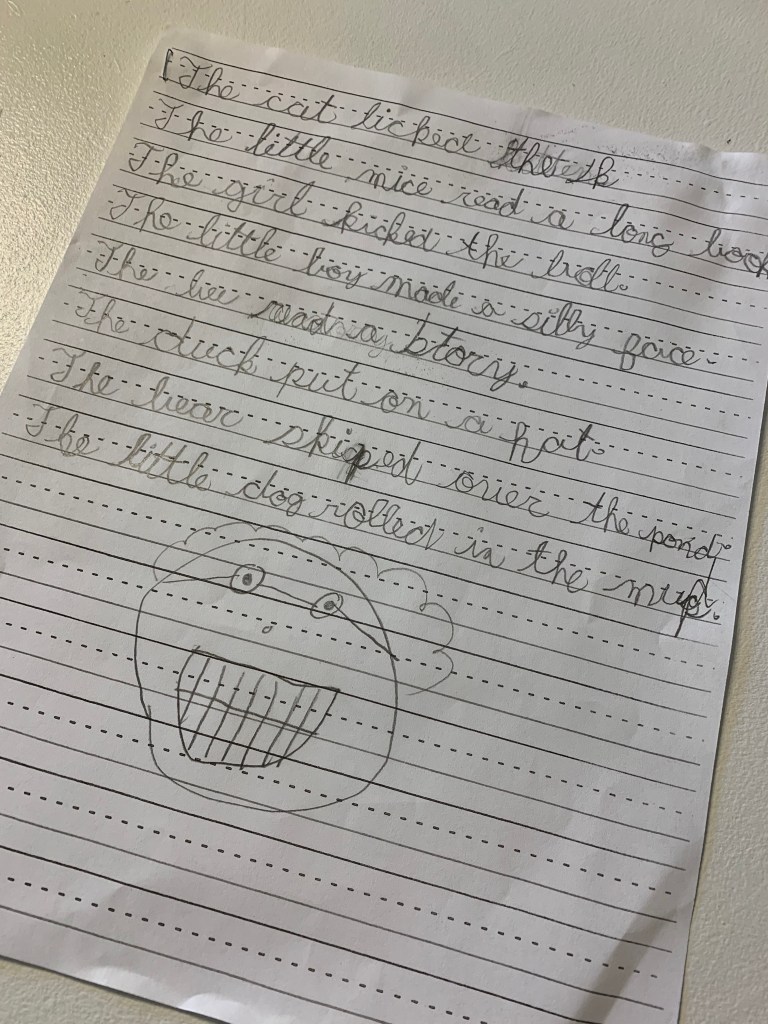 The cat licked
The little mice read a long book
The girl kicked the ball.
The little boy made a silly face.
The bee read a story.
The duck put on a hat.
The bear skipped over the pond.
The little dog rolled in the mud.